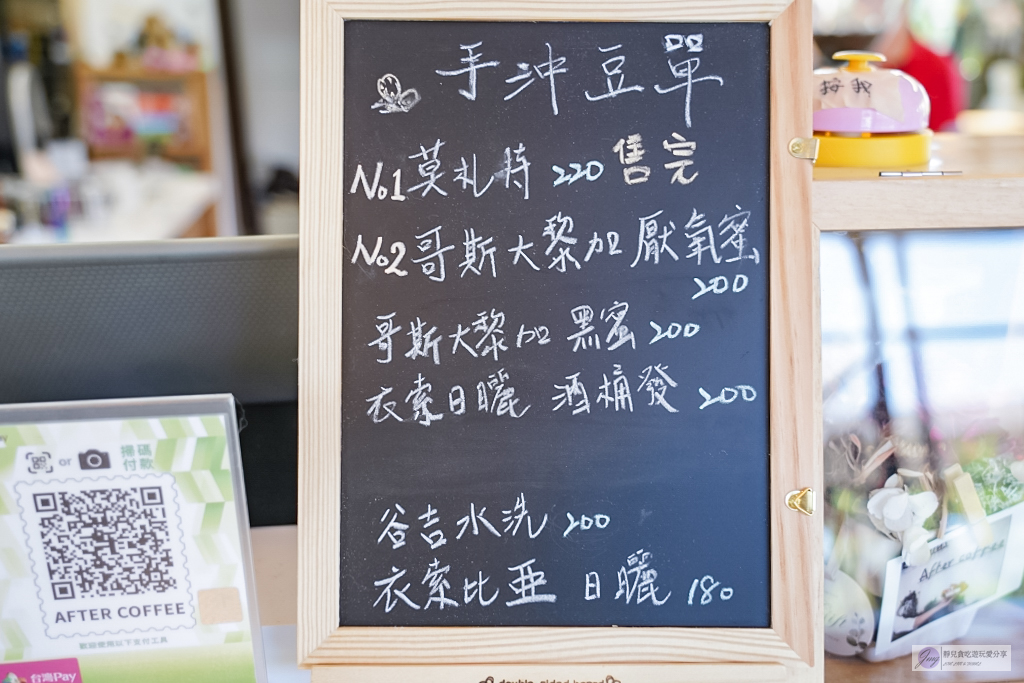 手沖豆單
No.1 莫札特 220 售完
No.2 哥斯大黎加 厭氧蜜
200
哥斯大黎加 黑蜜 200
衣索日曬 酒桶發 200
谷吉水洗 200
衣索比亞 日曬 180
按我
or
掃碼
付款
AFTER COFFEE
歡迎使用以下支付工具
台灣Pay
After coffee
double-sided board
靜兒貪吃遊玩愛分享